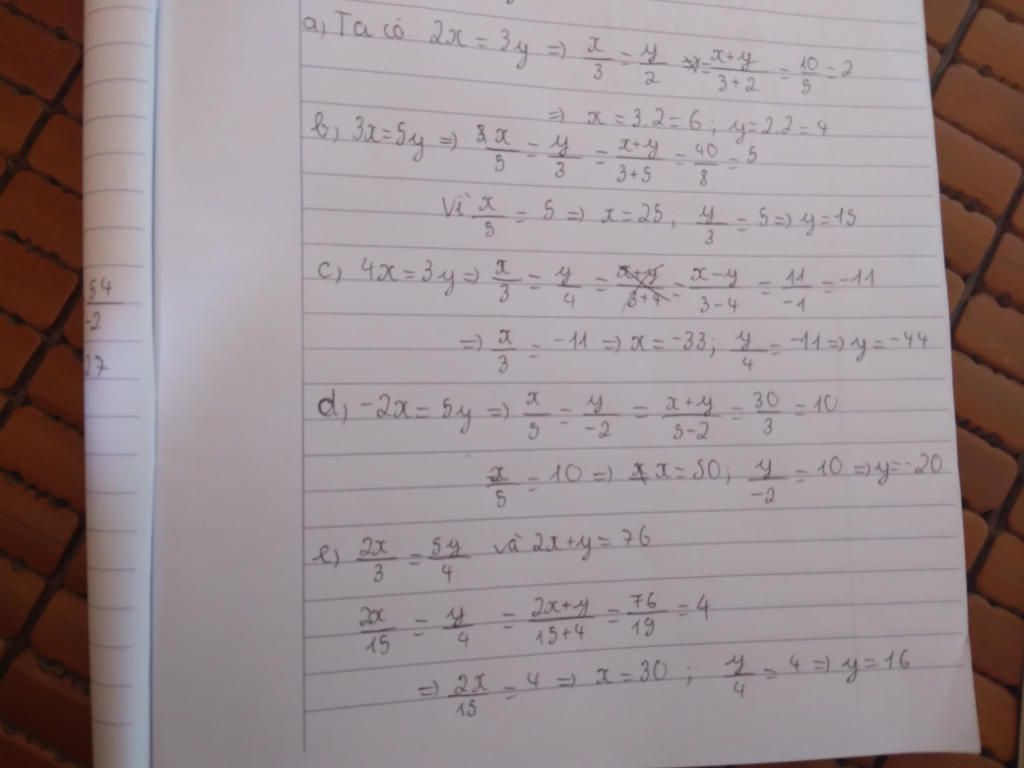 a, Ta có 2x = 3y => x/3 = y/2 = x+y/3+2 = 10/5 = 2
=> x = 3.2 = 6 ; y = 2.2 = 4
b, 3x = 5y => x/5 = y/3 = x+y/3+5 = 40/8 = 5
Vì x/5 = 5 => x = 25 ; y/3 = 5 => y = 15
c, 4x = 3y => x/3 = y/4 = x+y/3+4 = x-y/3-4 = 11/-1 = -11
=> x/3 = -11 => x = -33 ; y/4 = -11 => y = -44
54
-2
27
d, -2x = 5y => x/5 = y/-2 = x+y/5-2 = 30/3 = 10
x/5 = 10 => x = 50 ; y/-2 = 10 => y = -20
e, 2x/3 = 5y/4 và 2x+y = 76
2x/15 = y/4 = 2x+y/15+4 = 76/19 = 4
=> 2x/15 = 4 => x = 30 ; y/4 = 4 => y = 16